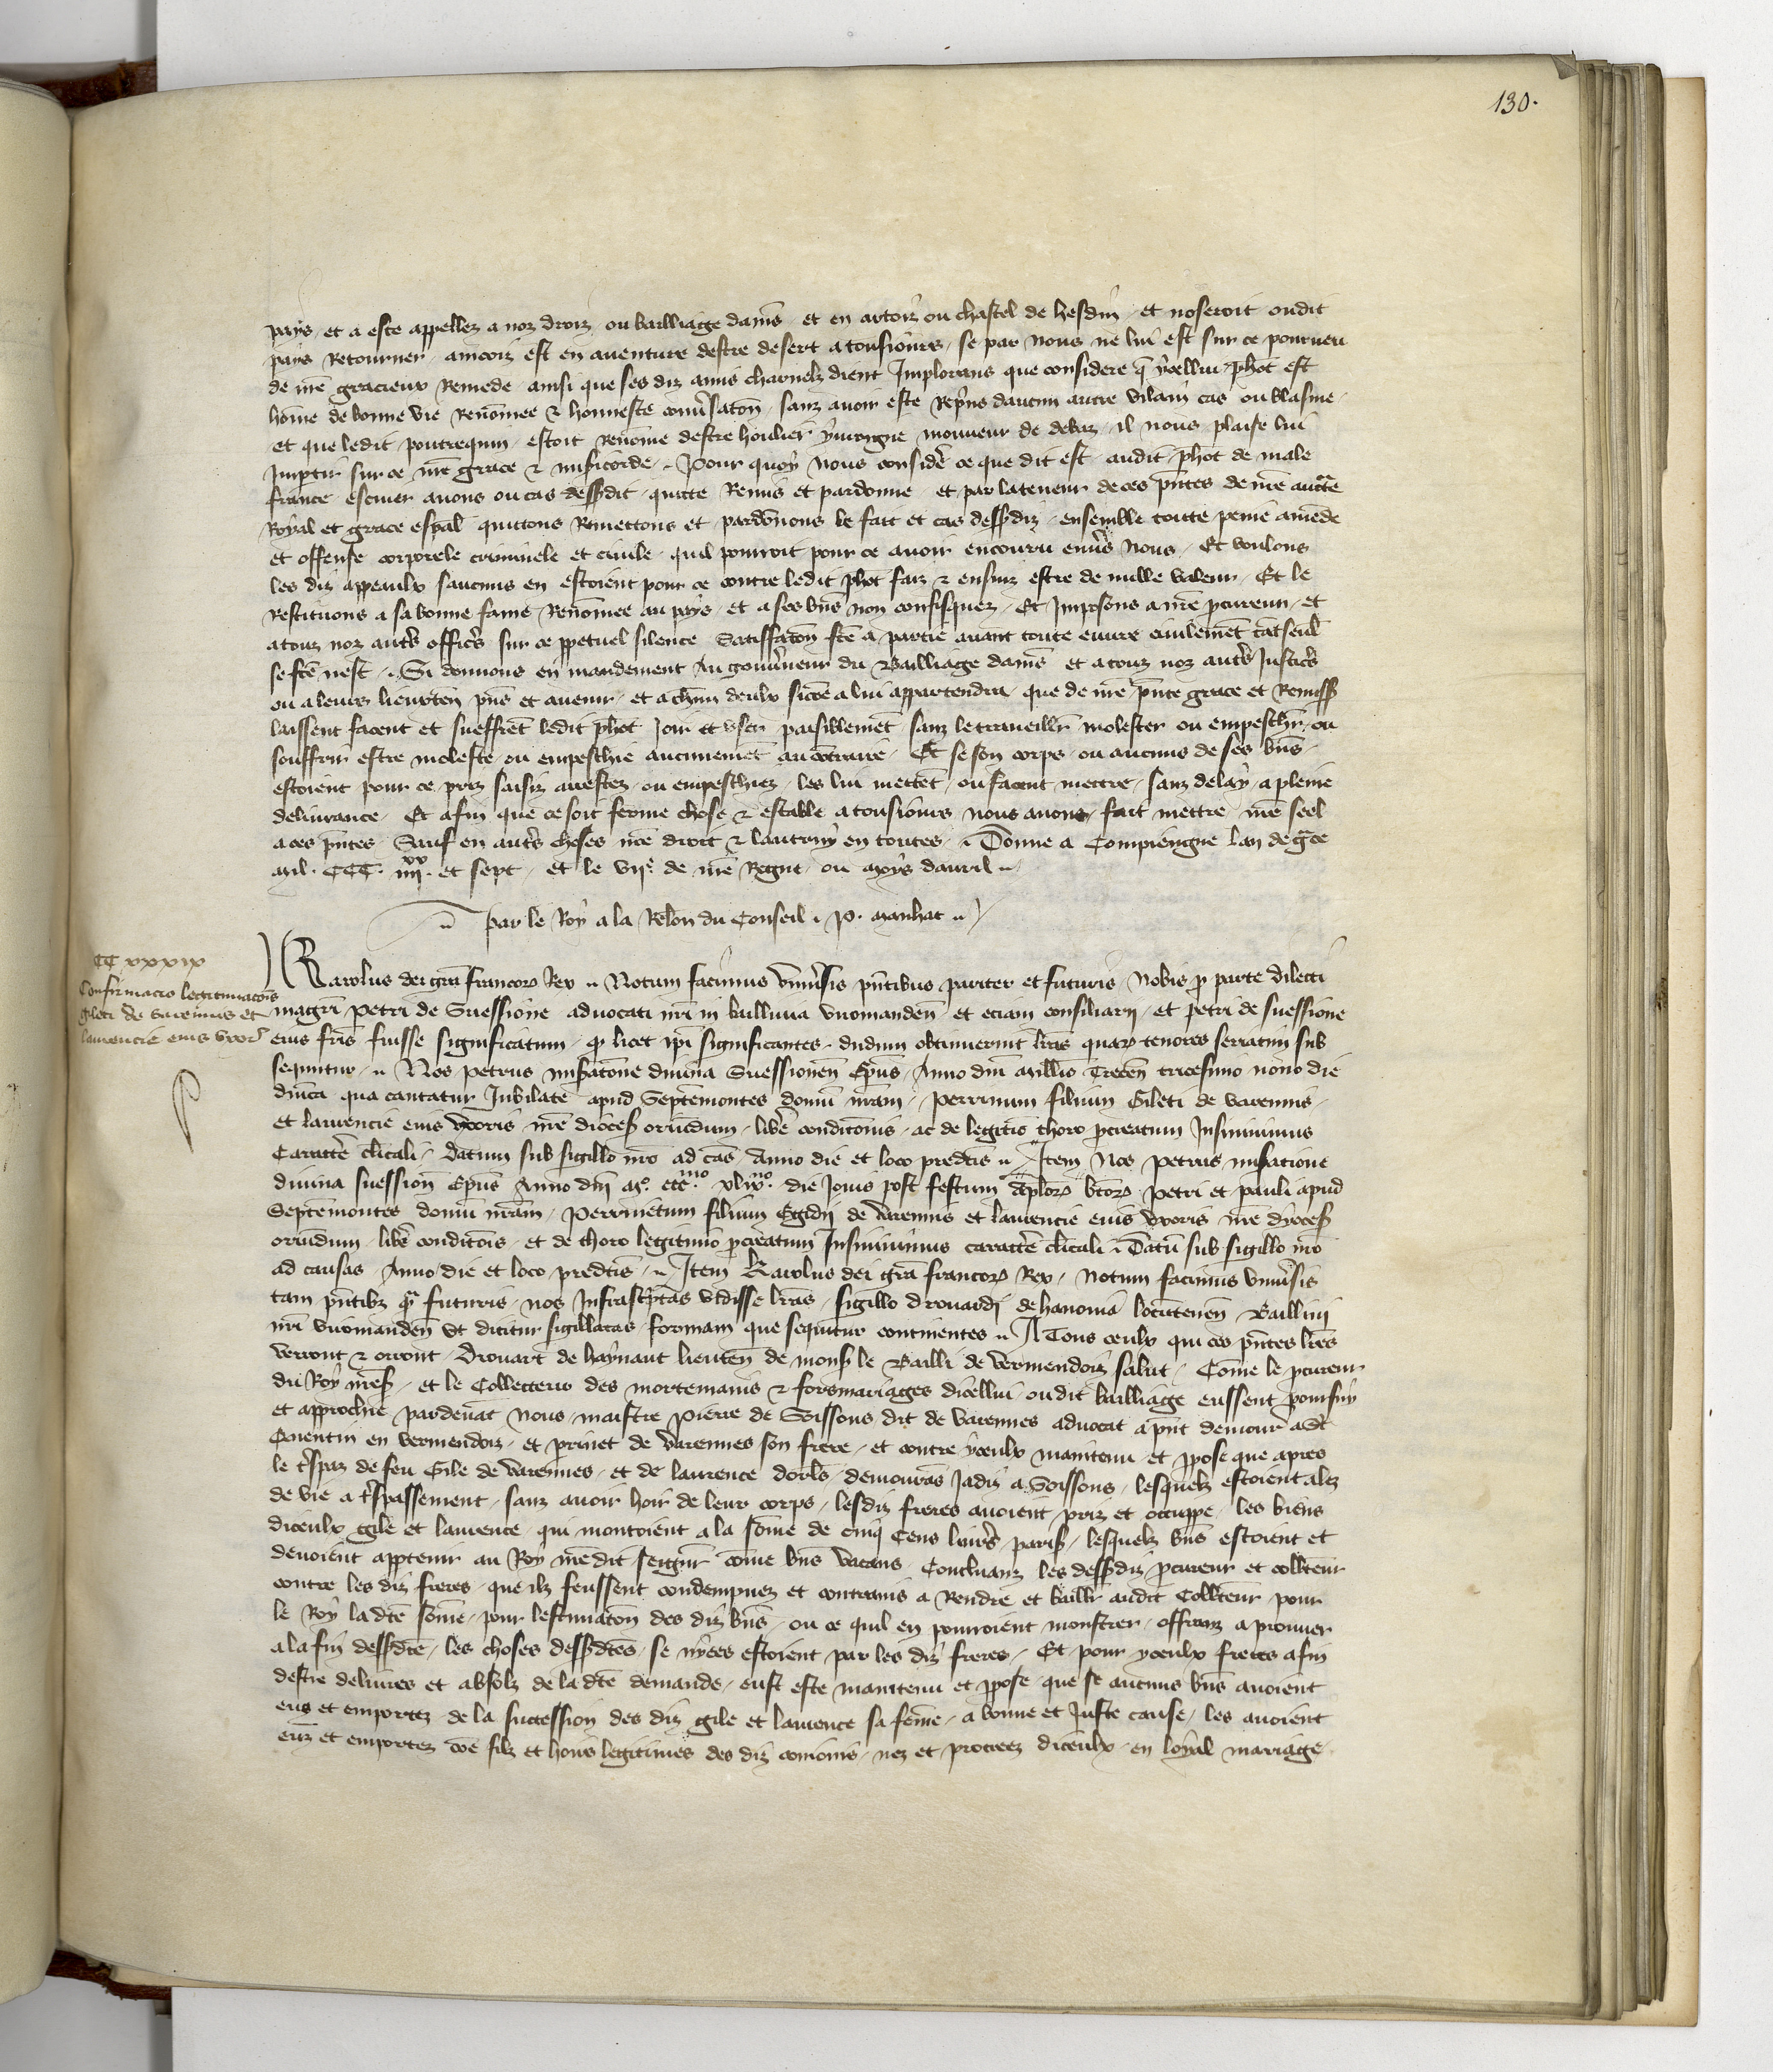 130.
pays et a este appellez a noz droiz ou bailliage damiēs et en artois ou chastel de hesdin et noseroit oudit
pays Retourner aincois est en aventure destre desert a tousiours se par nous ne lui est sur ce pourveu
de nr̄e gracieux Remede ainsi que ses diz amis charnelz dient Implorans que considere q̄ ycellui phōt est
hōme de bonne vie Renōmee ⁊ honneste conv̄satōn sanz avoir este Rep̄ns daucun autre vilain cas ou blasme
et que ledit poutrequin estoit Renōme destre houlier yvrongne mouveur de debaz il nous plaise lui
Imptir sur ce nr̄e grace ⁊ miſicorde Pour quoy nous considēr ce que dit est audit phōt de male
france escuier avons ou cas dessdit quitte Remis et pardonne et par la teneur de ces p̄ntes de nr̄e auctt̄e
Royal et grace esp̄al quittons Remettons et pardōnons le fait et cas dessdiz ensemble toute peine amēde
et offense corporele criminele et civile quil pourroit pour ce avoir encouru env̄s Nous Et voulons
les diz appeaulx saucuns en estoient pour ce contre ledit phōt faiz ⁊ ensuiz estre de nulle valeur Et le
Restituons a sa bonne fame Renōmee au pays et a ses bn̄s non confisquez Et Imposons a nr̄e pcureur et
a touz noz autr̄s offic̄rs sur ce ppetuel silence Satissfatōn fc̄e a partie avant toute euvre civilemēt tāt seul̄
se fc̄e nest Si donnons en mandement Au gouv̄neur du Bailliage damiēs et a touz noz autr̄s Justic̄rs
ou a leurs lieuxten̄ p̄ns et avenir et a chūn deulx sicōe a lui appartendra que de nr̄e p̄nte grace et Remiss̄
laissent facent et sueffrēt ledit phōt Joir et user paisiblemēt sanz le traveillr̄ molester ou empeschr̄ ou
souffrir estre moleste ou empeschie aucunemēt au cōtraire Et se son corps ou aucuns de ses bn̄s
estoient pour ce priz saisiz arrestez ou empeschiez les lui mettēt ou facent mettre sanz delay a pleine
delivrance Et afin que ce soit ferme chose ⁊ estable a tousiours nous avons fait mettre nr̄e seel
a ces p̄ntes Sauf en autr̄s choses nr̄e droit ⁊ lautruy en toutes Donne a Compiengne lan de gr̄ce
mil CCC iiii^xx et sept et le vii^e de nr̄e Regne ou moys davril
par le Roy a la Relon̄ du Conseil P. manhac
CC xxxix
Confirmacio legittimacōis
gileti de varennis et
laurencie eius uxor̄
Karolus dei grā francorꝝ Rex Notum facimus univ̄sis p̄ntibus pariter et futuris Nobis p parte dilecti
magr̄i Petri de Suessione advocati nr̄i in ballivia viromanden̄ et eciam consiliarii et petri de suessione
eius fr̄is fuisse significatum q̄ licet ip̄i significantes dudum obtinuerint lr̄as quarꝝ tenores seriatim sub
sequntur Nos Petrus miſatōne divina Suessionen̄ Ep̄us Anno dn̄i millio Trecēn tricesimo nono die
dn̄ica qua cantatur Jubilate apud Septemontes domū nr̄am Perrinum filium Gileti de varennis
et laurencie eius uxoris nr̄e dioceſ oriūdum libē condit̄onis ac de legitio thoro pcreatum Insinivimus
Caractē cl̄icali Datum sub sigillo nr̄o ad cās Anno die et loco predc̄is Item Nos Petrus miſatione
divina suession̄ Ep̄us Anno dn̄i Mº. ccc^mo. xlix^no. die Jovis post festum ap̄lorꝝ bt̄orꝝ Petri et pauli apud
Septemontes domū nr̄am Perrinetum filium Egidii de varennis et laurencie eius uxoris nr̄e dyoceſ
oriūdum libē condit̄ois et de thoro legitimo pcreatum Insinivimus caractē cl̄icali Datū sub sigillo nr̄o
ad causas Anno die et loco predc̄is Item Karolus dei grā francorꝝ Rex Notum facimus univ̄sis
tam p̄ntibꝫ q̄ futuris nos Infrasc̄ptas vidisse lr̄as sigillo drouardi de hanonia locūtenen̄ Baillivi
nr̄i viromanden̄ ut dicitur sigillatas formam que sequitur continentes A Tous ceulx qui ces p̄ntes lr̄es
verront ⁊ orront Drouart de haynaut lieuten̄ de monſ le Bailli de vermendois salut Cōme le pcureur
du Roy nr̄eſ et le Collecteur des mortemains ⁊ forsmariages dicellui oudit bailliage eussent poursuy
et approchie pardevāt Nous maistre pierre de Soissons dit de varennes advocat a p̄nt demour̄ a St̄
Quentin en vermendois et Prinet de varennes son frere et contre yceulx maintenu et ppose que apres
le t̄spas de feu Gile de varennes et de laurence dorl̄s demourās Jadis a Soissons lesquelz estoient alez
de vie a t̄spassement sanz avoir hoir de leur corps lesdiz freres avoient priz et occuppe les biens
diceulx gile et laurence qui montoient a la sōme de cinq Cens livr̄s pariſ lesquelz bn̄s estoient et
devoient apptenir au Roy nr̄edit seign̄r cōme bn̄s vacans Concluanz les dessdiz pcureur et collteur
contre les diz freres que ilz feussent condempnez et contrains a Rendre et baillr̄ audit Collteur pour
le Roy ladt̄e sōme pour lestimatōn des diz bn̄s ou ce quil en pourroient monstrer offranz a prouver
a la fin dessdt̄e les choses dessdt̄es se nyees estoient par les diz freres Et pour yceulx freres afin
destre delivres et absolz de la dt̄e demande eust este maintenu et ppose que se aucuns bn̄s avoient
euz et emportez de la succession des diz gile et laurence sa fēme a bonne et Juste cause les avoient
euz et emportez cōe filz et hoirs legitimes des diz conioins nez et procreez diceulx en loyal mariage